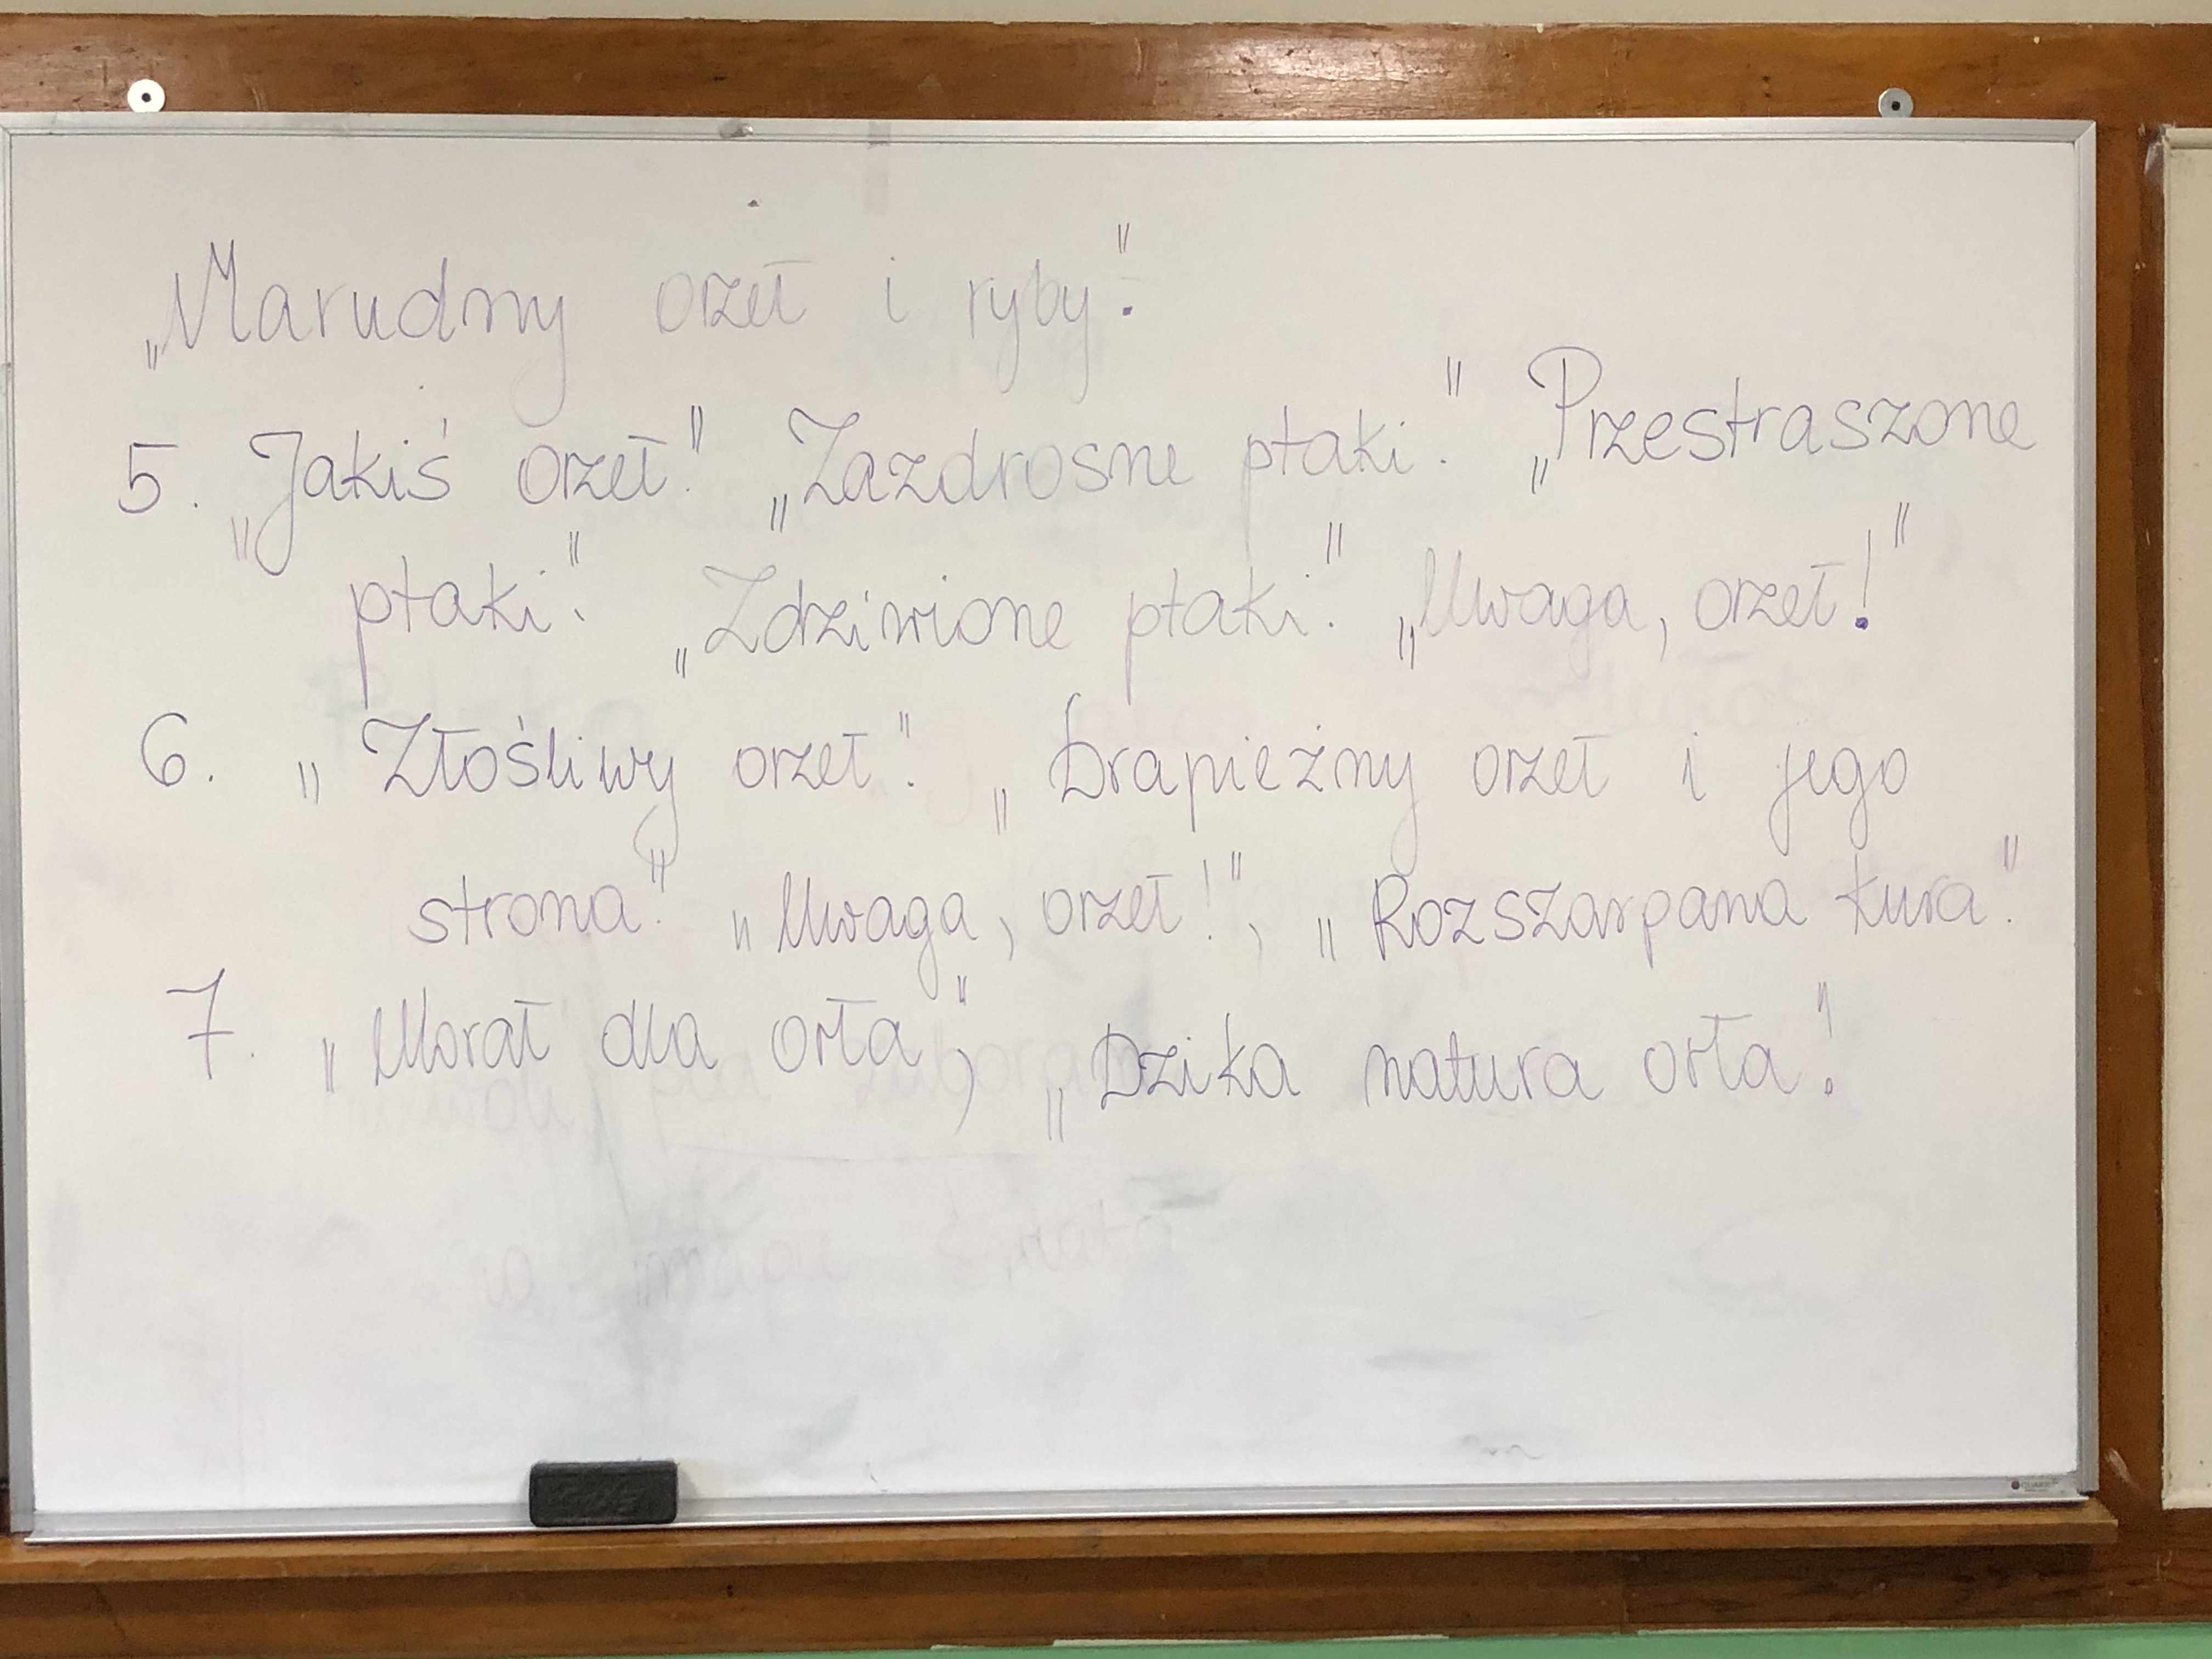 „Marudny orzeł i ryby".
5. „Jakiś orzeł". „Zazdrosne ptaki". „Przestraszone
ptaki". „Zdziwione ptaki". „Uwaga, orzeł!"
6. „Złośliwy orzeł". „Drapieżny orzeł i jego
strona". „Uwaga, orzeł!", „Rozszarpana kura".
7. „Morał dla orła", „Dzika natura orła".